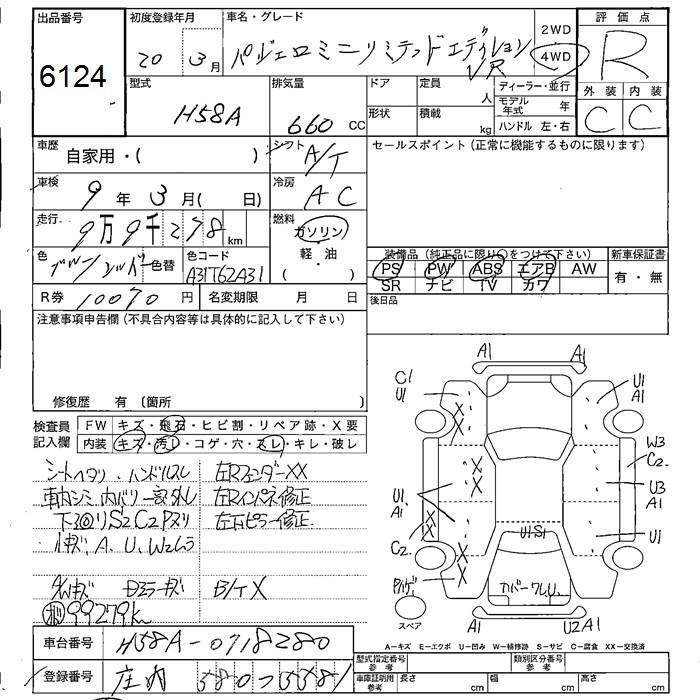 出品番号 初度登録年月 車名・グレード 2WD 評価点
6124 20 3月 パジェロミニリミテッドエディション 4WD R
VR
型式 排気量 ドア 定員 人 ディーラー・並行 外装 内装
H58A 660cc 形状 積載 kg モデル年式 年 C C
ハンドル 左・右
車歴 自家用・( ) シフト A/T セールスポイント(正常に機能するものに限ります)
車検 9年3月( 日) 冷房 AC
走行 9万9千278km 燃料 ガソリン
軽・油
色 色替 色コード A31T62A31 装備品(純正品に限り○をつけて下さい) 新車保証書
( ) PS PW ABS エアB AW 有・無
R券 10070円 名変期限 月 日 SR ナビ TV カワ
後日品
注意事項申告欄(不具合内容等は具体的に記入して下さい)
修復歴 有(箇所 )
検査員 FW キズ・飛石・ヒビ割・リペア跡・X要
記入欄 内装 キズ・汚レ・コゲ・穴・スレ・キレ・破レ
シートヘタリ、ハンドルスレ 左RフェンダーXX
車内シミ、内バリ一部外し 左Rインパネ修正
S2C2 左右ピラー修正
A、U、W2
B/TX
99279k
A1 A1
C1 U1 U1 A1
W3 C2
U1 A1 U3 A1
C2 U1
U1S1
カバーワレU
スペア A1 U2A1
A-キズ E-エクボ U-凹み W-補修跡 S-サビ C-腐食 XX-交換済
車台番号 H58A-0718280 型式指定番号 参考 類別区分番号 参考
登録番号 庄内 580 つ 5581 車庫証明用 参考 長さ cm 幅 cm 高さ cm